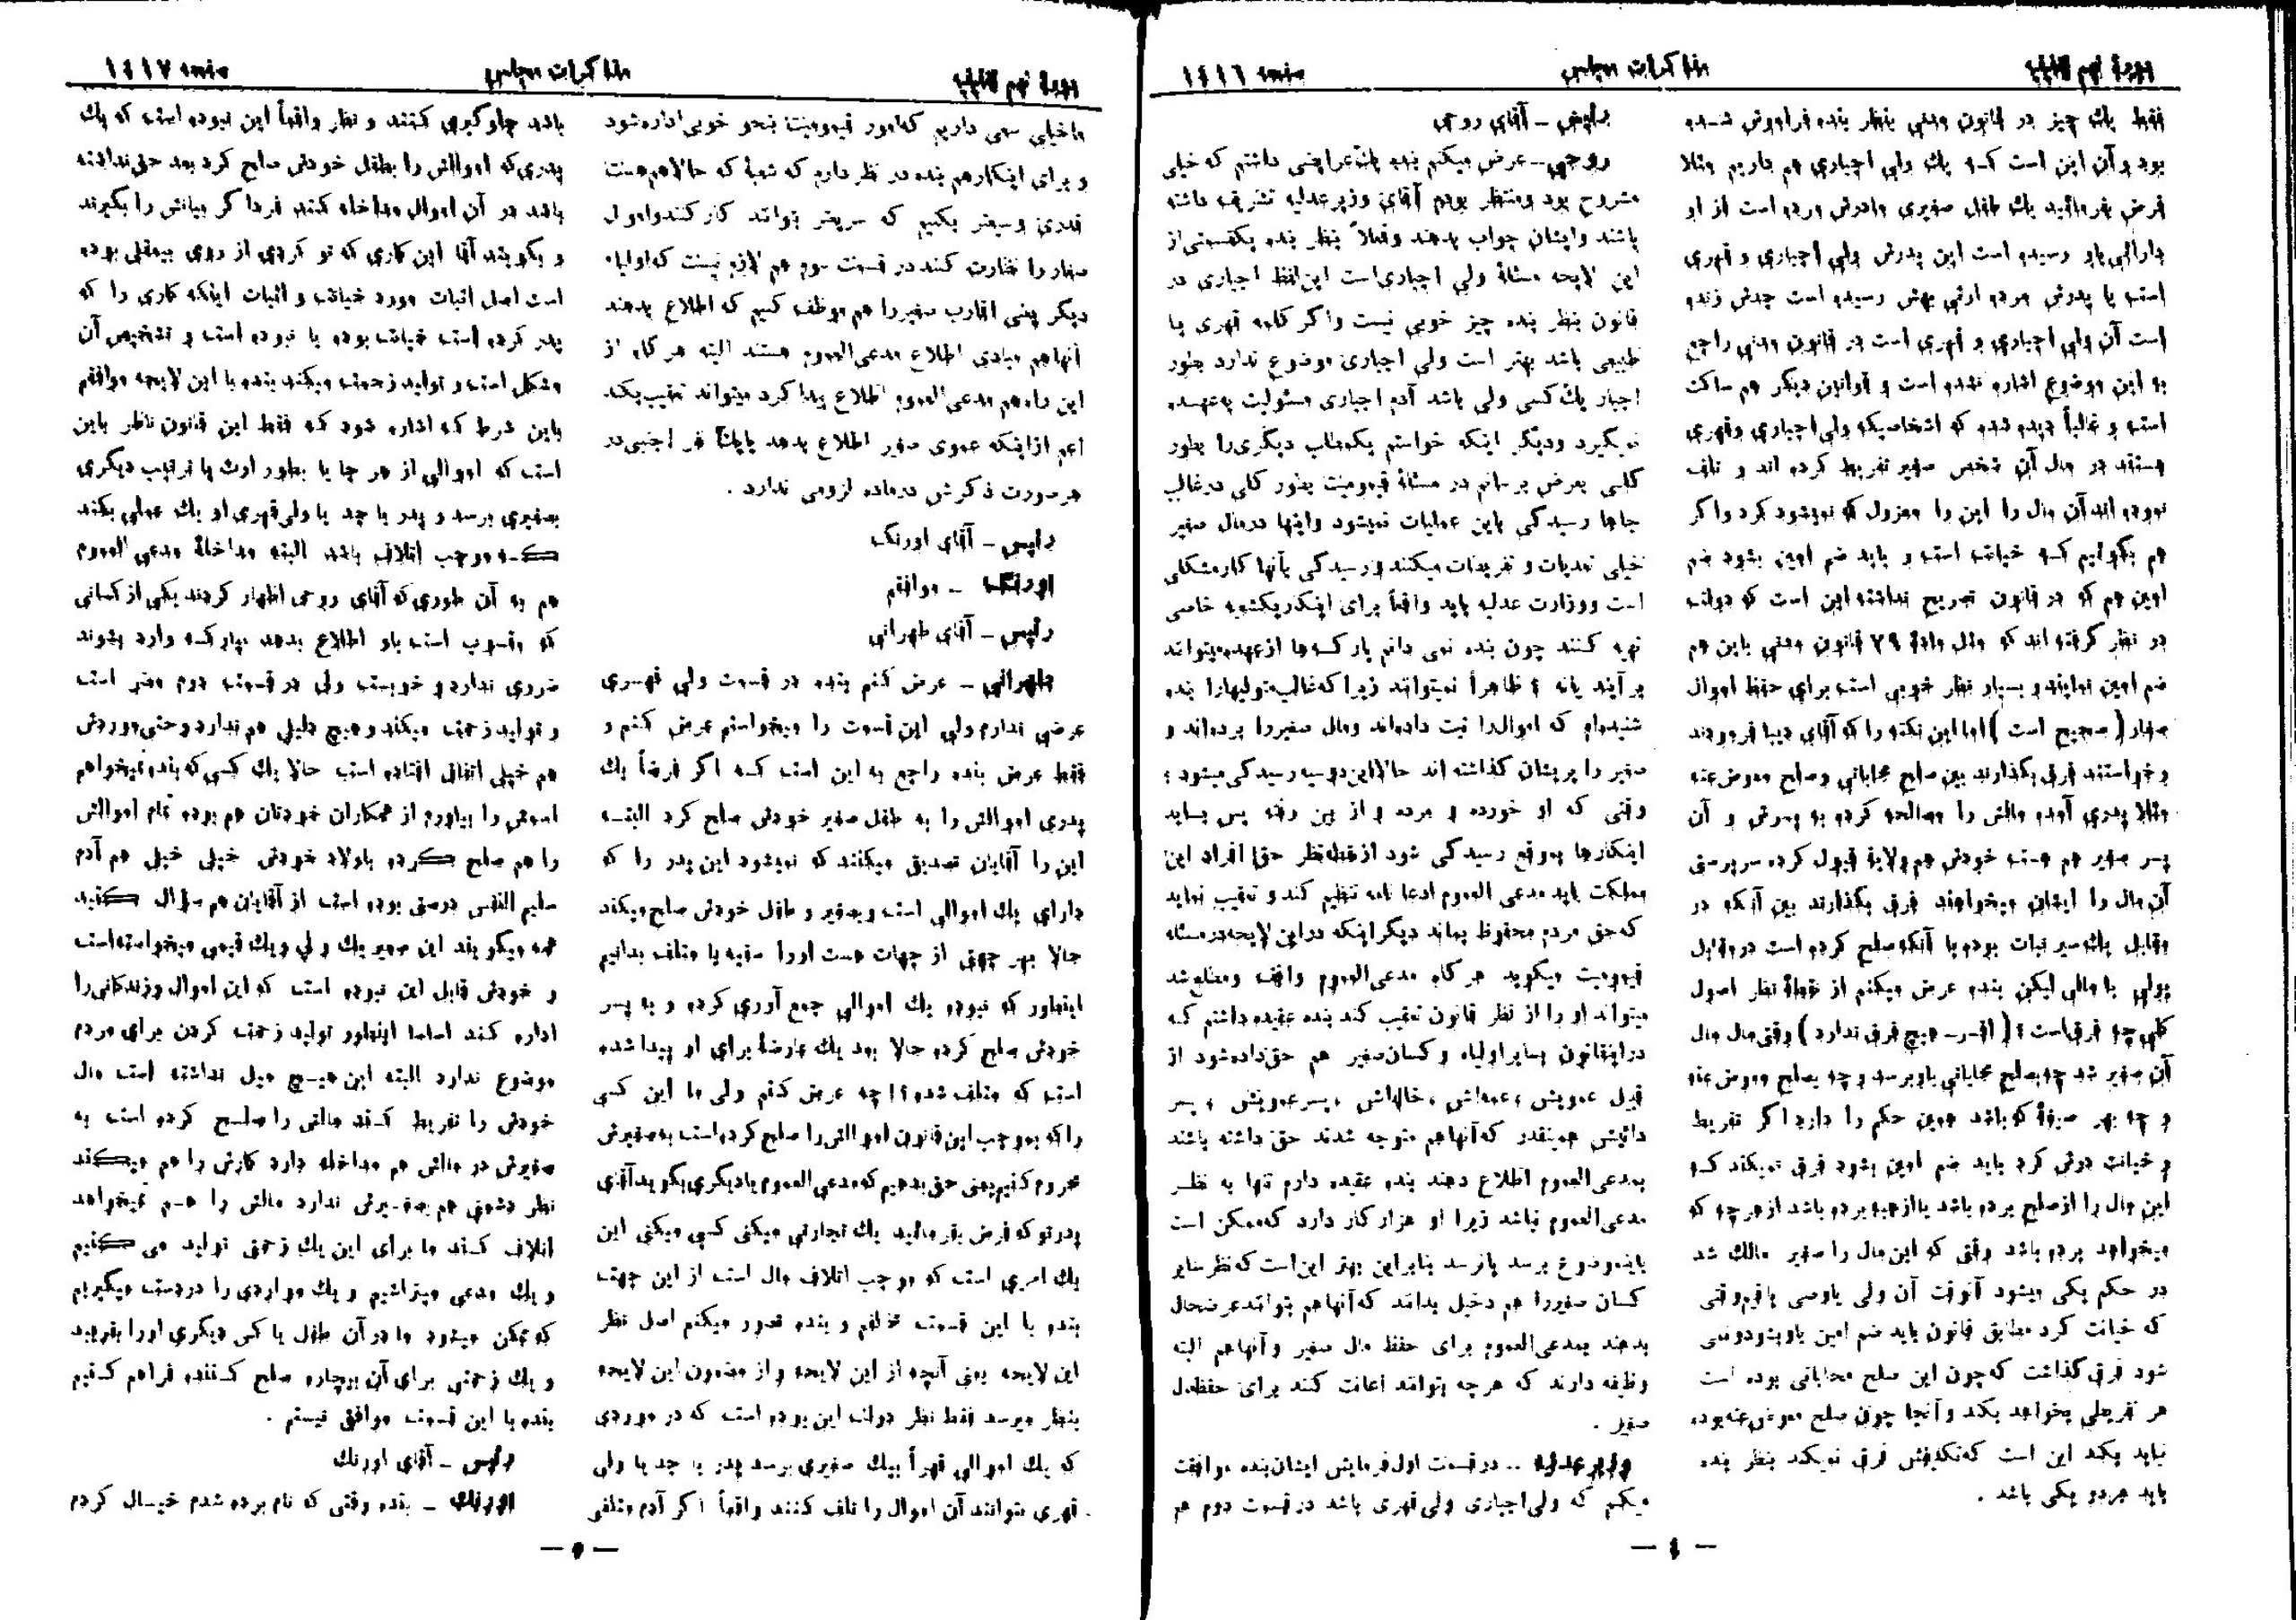 دوره نهم تقنینیه
مذاکرات مجلس
صفحه ١٤١٦
فقط یك چیز در قانون مدنی بنظر بنده فراموش شده
بود و آن این است که یك ولی اجباری هم داریم مثلا
فرض بفرمائید یك طفل صغیری مادرش مرده است از او
دارائی باو رسیده است این پدرش ولی اجباری و قهری
است یا پدرش مرده ارثی بهش رسیده است جدش زنده
است آن ولی اجباری و قهری است در قانون مدنی راجع
به این موضوع اشاره نشده است و قوانین دیگر هم ساکت
است و غالباً دیده شده که اشخاصیکه ولی اجباری و قهری
هستند در مال آن شخص صغیر تفریط کرده اند و تلف
نموده اند آن مال را این را معزول که نمیشود کرد و اگر
هم بگوئیم که خیانت است و باید ضم امین بشود ضم
امین هم که در قانون تصریح نداشته این است که دولت
در نظر گرفته اند که مثل مادهٔ ٧٩ قانون مدنی باین هم
ضم امین نمایند و بسیار نظر خوبی است برای حفظ اموال
صغار (صحیح است) اما این نکته را که آقای دیبا فرمودند
و خواستند فرق بگذارند بین صلح محاباتی و صلح معوض عنه
مثلا پدری آمده مالش را مصالحه کرده به پسرش و آن
پسر صغیر هم هست خودش هم ولایة قبول کرده سرپرستی
آن مال را ایشان میخواهند فرق بگذارند بین آنکه در
مقابل یك سیر نبات بوده یا آنکه صلح کرده است در مقابل
پولی یا مالی لیکن بنده عرض میکنم از نقطهٔ نظر اصول
کلی چه فرق است ؟ (افسر - هیچ فرق ندارد) وقتی مال مال
آن صغیر شد چه بصلح محاباتی باو برسد و چه بصلح معوض عنه
و چه بهر صیغهٔ که باشد همین حکم را دارد اگر تفریط
و خیانت درش کرد باید ضم امین بشود فرق نمیکند که
این مال را از صلح برده باشد یا از هبه برده باشد از هر چه که
میخواهد برده باشد وقتی که این مال را صغیر مالك شد
در حکم یکی میشود آنوقت آن ولی یا وصی یا قیم وقتی
که خیانت کرد مطابق قانون باید ضم امین باو بشود و نمی
شود فرق گذاشت که چون این صلح محاباتی بوده است
هر تفریطی بخواهد بکند و آنجا چون صلح معوض عنه بوده
نباید بکند این است که تکلیفش فرق نمیکند بنظر بنده
باید هر دو یکی باشد .
رئیس - آقای روحی
روحی - عرض میکنم بنده یك عرایضی داشتم که خیلی
مشروح بود و منتظر بودم آقای وزیر عدلیه تشریف داشته
باشند و ایشان جواب بدهند و فعلاً بنظر بنده یکقسمتی از
این لایحه مسئلهٔ ولی اجباری است این لفظ اجباری در
قانون بنظر بنده چیز خوبی نیست و اگر کلمه قهری یا
طبیعی باشد بهتر است ولی اجباری موضوع ندارد بطور
اجبار یك کسی ولی باشد آدم اجباری مسئولیت به عهده
نمیگیرد و دیگر اینکه خواستم یکمطلب دیگری را بطور
کلی بعرض برسانم در مسئلهٔ قیمومیت بطور کلی در غالب
جاها رسیدگی باین عملیات نمیشود و اینها در مال صغیر
خیلی تعدیات و تفریطات میکنند و رسیدگی بآنها کار مشکلی
است و وزارت عدلیه باید واقعاً برای اینکار یکشعبه خاصی
تهیه کنند چون بنده نمی دانم پارکه ها از عهده میتوانند
برآیند یا نه ؟ ظاهراً نمیتوانند زیرا که غالب متولیها را بنده
شنیده ام که اموال را ثبت داده اند و مال صغیر را برده اند و
صغیر را پریشان گذاشته اند حالا این دوسیه رسیدگی میشود ؛
وقتی که او خورده و مرده و از بین رفته پس باید
اینکارها بموقع رسیدگی شود از نقطه نظر حق افراد این
مملکت باید مدعی العموم ادعا نامه تنظیم کند و تعقیب نماید
که حق مردم محفوظ بماند دیگر اینکه در این لایحه در مسئله
قیمومیت میگوید هر گاه مدعی العموم واقف و مطلع شد
میتواند او را از نظر قانون تعقیب کند بنده عقیده داشتم که
در این قانون بسایر اولیاء و کسان صغیر هم حق داده شود از
قبیل عمویش ، عمه اش ، خاله اش ، پسر عمویش ، پسر
دائیش همینقدر که آنها هم متوجه شدند حق داشته باشند
بمدعی العموم اطلاع دهند بنده عقیده دارم تنها به نظر
مدعی العموم نباشد زیرا او هزار کار دارد که ممکن است
باینموضوع برسد یا نرسد بنابراین بهتر این است که نظر سایر
کسان صغیر را هم دخیل بدانند که آنها هم بتوانند عرضحال
بدهند بمدعی العموم برای حفظ مال صغیر و آنها هم البته
وظیفه دارند که هر چه بتوانند اعانت کنند برای حفظ مال
صغیر .
وزیر عدلیه - در قسمت اول فرمایش ایشان بنده موافقت
میکنم که ولی اجباری ولی قهری باشد در قسمت دوم هم
— ٤ —
دوره نهم تقنینیه
مذاکرات مجلس
صفحه ١٤١٧
ما خیلی سعی داریم که امور قیمومیت بنحو خوبی اداره شود
و برای اینکار هم بنده در نظر دارم که شعبهٔ که حالا هم هست
قدری وسیعتر بکنیم که سریعتر بتوانند کار کنند و اموال
صغار را نظارت کنند در قسمت سوم هم لازم نیست که اولیاء
دیگر یعنی اقارب صغیر را هم موظف کنیم که اطلاع بدهند
آنها هم مبادی اطلاع مدعی العموم هستند البته هر گاه از
این راه هم مدعی العموم اطلاع پیدا کرد میتواند تعقیب بکند
اعم از اینکه عموی صغیر اطلاع بدهد یا یك نفر اجنبی در
هر صورت ذکرش در ماده لزومی ندارد .
رئیس - آقای اورنگ
اورنگ - موافقم
رئیس - آقای طهرانی
طهرانی - عرض کنم بنده در قسمت ولی قهری
عرضی ندارم ولی این قسمت را میخواستم عرض کنم و
فقط عرض بنده راجع به این است که اگر فرضاً یك
پدری اموالش را به طفل صغیر خودش صلح کرد البته
این را آقایان تصدیق میکنند که نمیشود این پدر را که
دارای یك اموالی است و بصغیر و طفل خودش صلح میکند
حالا بهر جهتی از جهات هست او را سفیه یا متلف بدانیم
اینطور که نبوده یك اموالی جمع آوری کرده و به پسر
خودش صلح کرده حالا بعد یك عارضهٔ برای او پیدا شده
است که متلف شده ؟! چه عرض کنم ولی ما این کسی
را که بموجب این قانون اموالش را صلح کرده است به صغیرش
محروم کنیم یعنی حق بدهیم که مدعی العموم یا دیگری بگوید آقای
پدر تو که فرض بفرمائید یك تجارتی میکنی کسبی میکنی این
یك امری است که موجب اتلاف مال است از این جهت
بنده با این قسمت مخالفم و بنده تصور میکنم اصل نظر
این لایحه یعنی آنچه از این لایحه و از مضمون این لایحه
بنظر میرسد فقط نظر دولت این بوده است که در موردی
که یك اموالی قهراً بیك صغیری برسد پدر یا جد یا ولی
قهری نتوانند آن اموال را تلف کنند واقعاً اگر آدم متلفی
باشد جلوگیری کنند و نظر واقعاً این نبوده است که یك
پدری که اموالش را بطفل خودش صلح کرد بعد حق نداشته
باشد در آن اموال مداخله کند فردا گر بیانش را بگیرند
و بگویند آقا این کاری که تو کردی از روی بیعقلی بوده
است اصل اثبات مورد خیانت و اثبات اینکه کاری را که
پدر کرده است خیانت بوده یا نبوده است و تشخیص آن
مشکل است و تولید زحمت میکند بنده با این لایحه موافقم
باین شرط که اشاره شود که فقط این قانون ناظر باین
است که اموالی از هر جا یا بطور ارث یا ترتیب دیگری
بصغیری برسد و پدر یا جد یا ولی قهری او یك عملی بکند
که موجب اتلاف باشد البته مداخلهٔ مدعی العموم
هم به آن طوری که آقای روحی اظهار کردند یکی از کسانی
که منسوب است باو اطلاع بدهد بپارکه وارد بشوند
ضرری ندارد و خوبست ولی در قسمت دوم مضر است
و تولید زحمت میکند و هیچ دلیلی هم ندارد و حتی موردش
هم خیلی اتفاق افتاده است حالا یك کسی که بنده نمیخواهم
اسمش را بیاورم از همکاران خودتان هم بوده تمام اموالش
را هم صلح کرده باولاد خودش خیلی خیلی هم آدم
سلیم النفس درستی بوده است از آقایان هم سؤال کنید
همه میگویند این صغیر یك ولی و یك قیمی میخواسته است
و خودش قابل این نبوده است که این اموال و زندگانی را
اداره کند اساسا اینطور تولید زحمت کردن برای مردم
موضوع ندارد البته این هیچ میل نداشته است مال
خودش را تفریط کند مالش را صلح کرده است به
صغیرش در مالش هم مداخله دارد کارش را هم میکند
نظر دشمنی هم بصغیرش ندارد مالش را هم نمیخواهد
اتلاف کند ما برای این یك زحمتی تولید می کنیم
و یك مدعی میتراشیم و یك مواردی را در دست میگیریم
که ممکن میشود ما در آن طفل یا کس دیگری او را بفریبد
و یك زحمتی برای آن بیچاره صلح کننده فراهم کنیم
بنده با این قسمت موافق نیستم .
رئیس - آقای اورنگ
اورنگ - بنده وقتی که نام برده شدم خیال کردم
— ٥ —